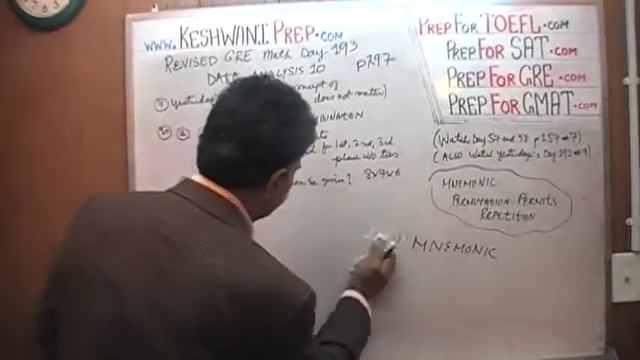 www.KESHWANIPREP.COM
REVISED GRE Math Day 193
p297
DATA ANALYSIS 10
Yesterday
concept of
does not matter)
for 1st, 2nd, 3rd
place w/o ties
8x7x6
PREPFORTOEFL.COM
PREPFORSAT.COM
PREPFORGRE.COM
PREPFORGMAT.COM
(Watch Day 57 and 58 p157#7)
(ALSO Watch Yesterday's Day 192#9)
MNEMONIC
PERMUTATION PERMITS
REPETITION
MNEMONIC